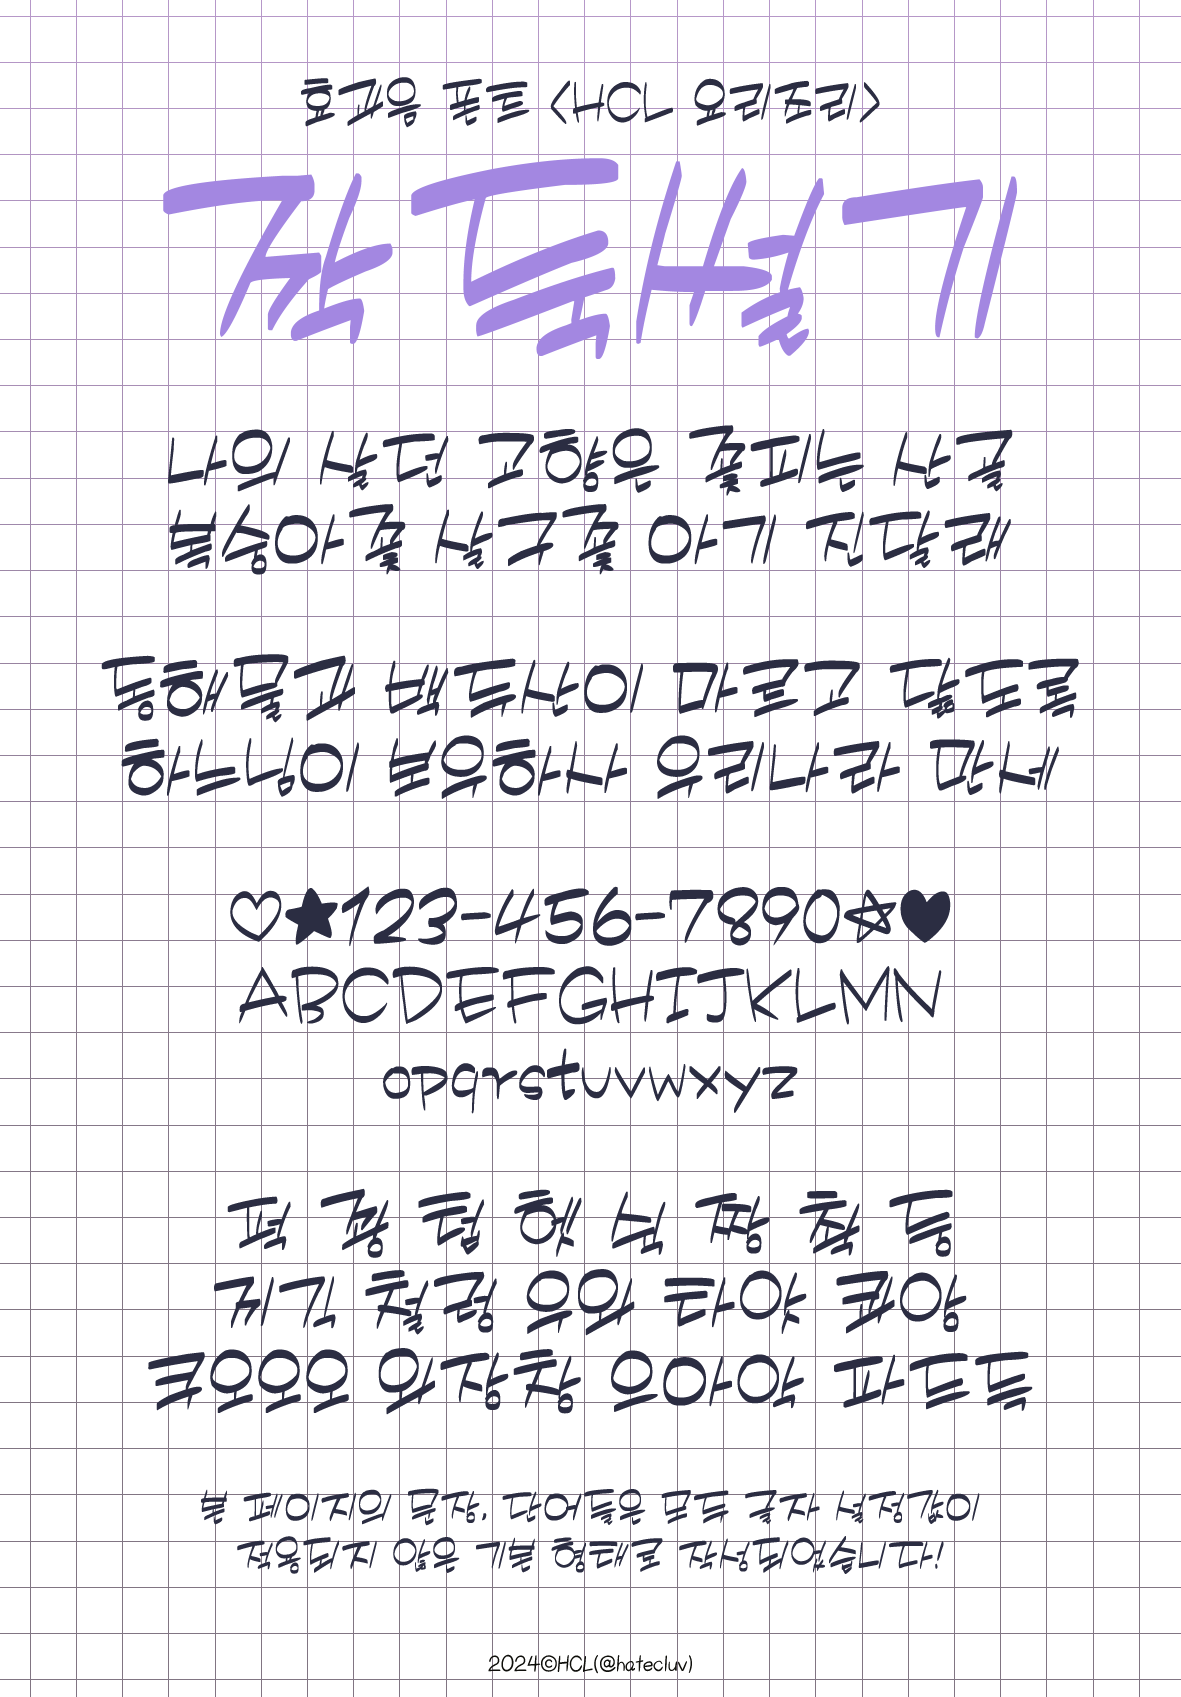 효과음 폰트 <HCL 요리조리>
작둑썰기
나의 살던 고향은 꽃피는 산골
복숭아꽃 살구꽃 아기 진달래
동해물과 백두산이 마르고 닳도록
하느님이 보우하사 우리나라 만세
♡★123-456-7890☆♥
ABCDEFGHIJKLMN
opqrstuvwxyz
퍽 쾅 털 헷 쉭 짱 촥 등
끼긱 철렁 우와 타앗 콰앙
크오오오 와장창 으아악 파드득
본 페이지의 문장, 단어들은 모두 글자 설정값이
적용되지 않은 기본 형태로 작성되었습니다!
2024©HCL(@hatecluv)